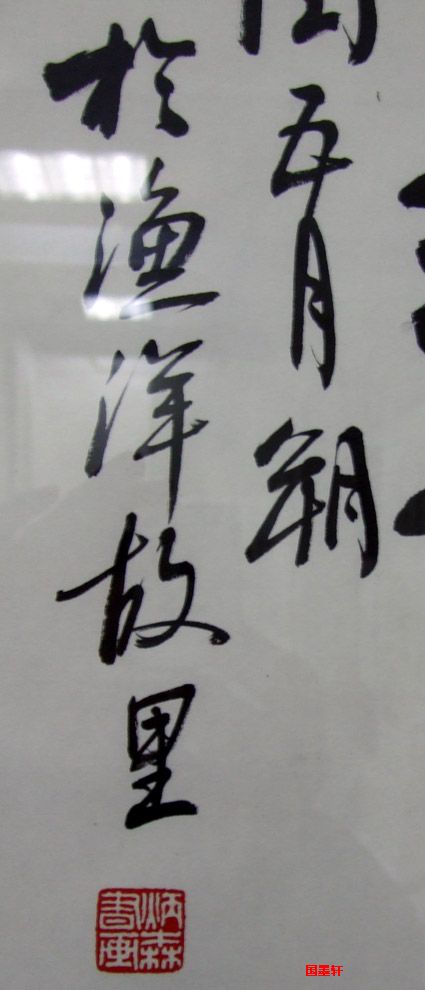 五月朔
於渔洋故里
炳森
書画
国墨轩